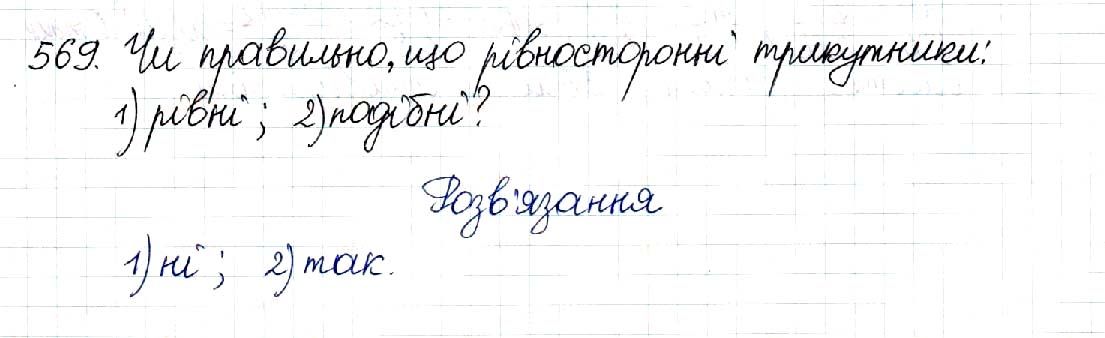 569. Чи правильно, що рівносторонні трикутники:
1) рівні; 2) подібні?
Розв'язання
1) ні; 2) так.